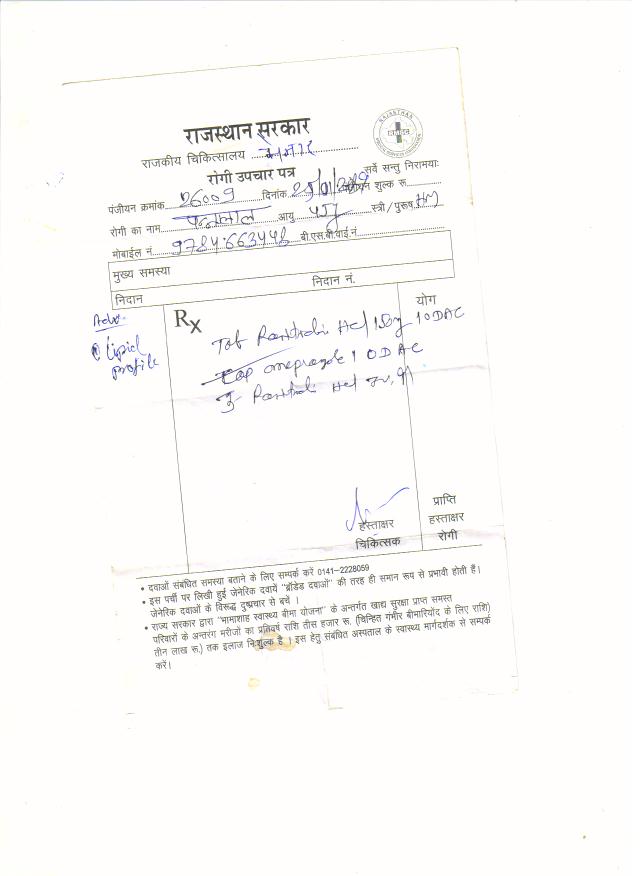 राजस्थान सरकार
RAJASTHAN
राजकीय चिकित्सालय
रोगी उपचार पत्र
सर्वे सन्तु निरामयाः
पंजीयन क्रमांक 26009 दिनांक पंजीयन शुल्क रू.
रोगी का नाम पन्नालाल आयु 45y स्त्री / पुरूष HM
मोबाईल नं. 9784663448 बी.एस.बी.वाई.नं
मुख्य समस्या
निदान निदान नं.
Adv.
Lipid
profile
Rx
योग
Tab HCl 150mg 1 ODAC
Cap omeprazole 1 ODAC
HCl
हस्ताक्षर
चिकित्सक
प्राप्ति
हस्ताक्षर
रोगी
• दवाओं संबंधित समस्या बताने के लिए सम्पर्क करें 0141-2228059
• इस पर्ची पर लिखी हुई जेनेरिक दवायें "ब्रॉंडेड दवाओं" की तरह ही समान रूप से प्रभावी होती हैं।
जेनेरिक दवाओं के विरूद्ध दुष्प्रचार से बचें ।
• राज्य सरकार द्वारा "भामाशाह स्वास्थ्य बीमा योजना" के अन्तर्गत खाद्य सुरक्षा प्राप्त समस्त
परिवारों के अन्तरंग मरीजों का प्रतिवर्ष राशि तीस हजार रू. (चिन्हित गंभीर बीमारियोंद के लिए राशि)
तीन लाख रू.) तक इलाज निःशुल्क है । इस हेतु संबंधित अस्पताल के स्वास्थ्य मार्गदर्शक से सम्पर्क
करें।